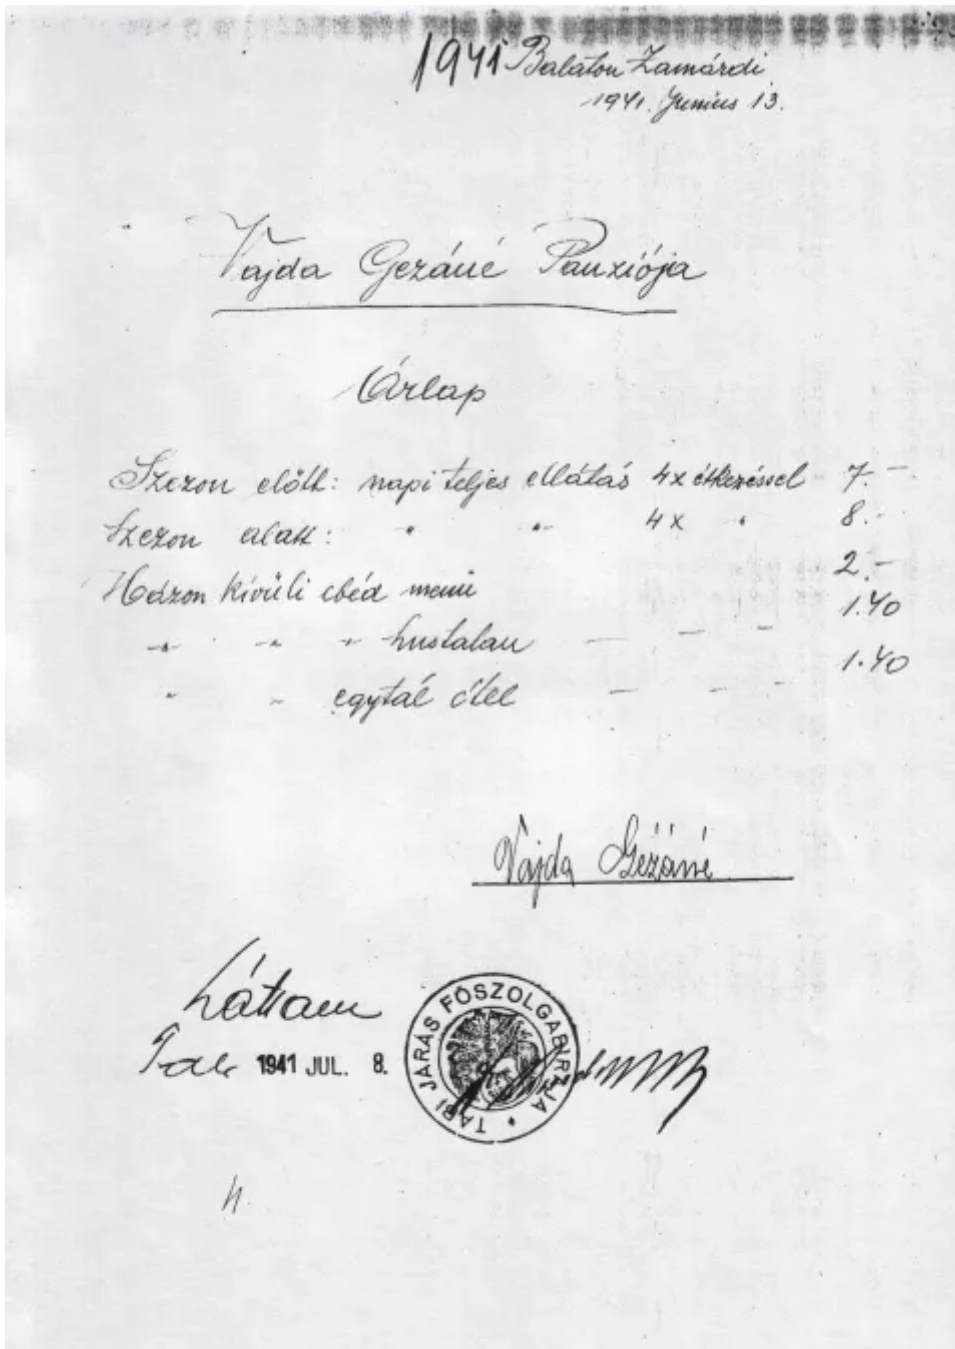 1941 Balaton Zamárdi
1941. Junius 13.
Vajda Gézáné Panziója
Árlap
Szezon előtt: napi teljes ellátás 4x étkezéssel 7.-
Szezon alatt: " " 4x " 8.-
Házon kívüli ebéd menü 2.-
" " " hustalan - - - 1.40
" " egytál étel - - - 1.40
Vajda Gézáné
Láttam
Tab 1941 JUL. 8.
TABI JÁRÁS FŐSZOLGABIRÁJA